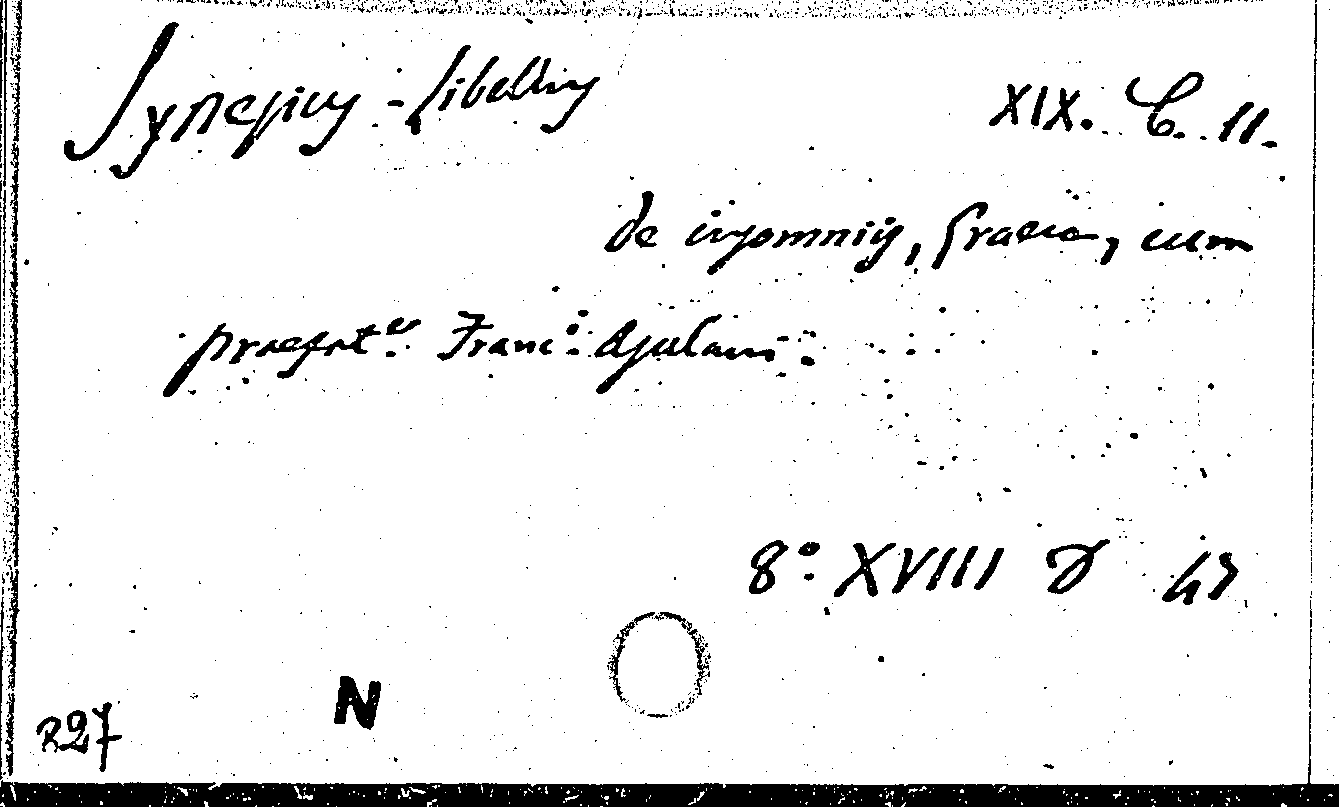 Synesius - libellus
XIX. C. 11.
de insomniis, Graece, cum
praefat.e Franc.i Asulani.
8.° XVIII D 47
N
R27